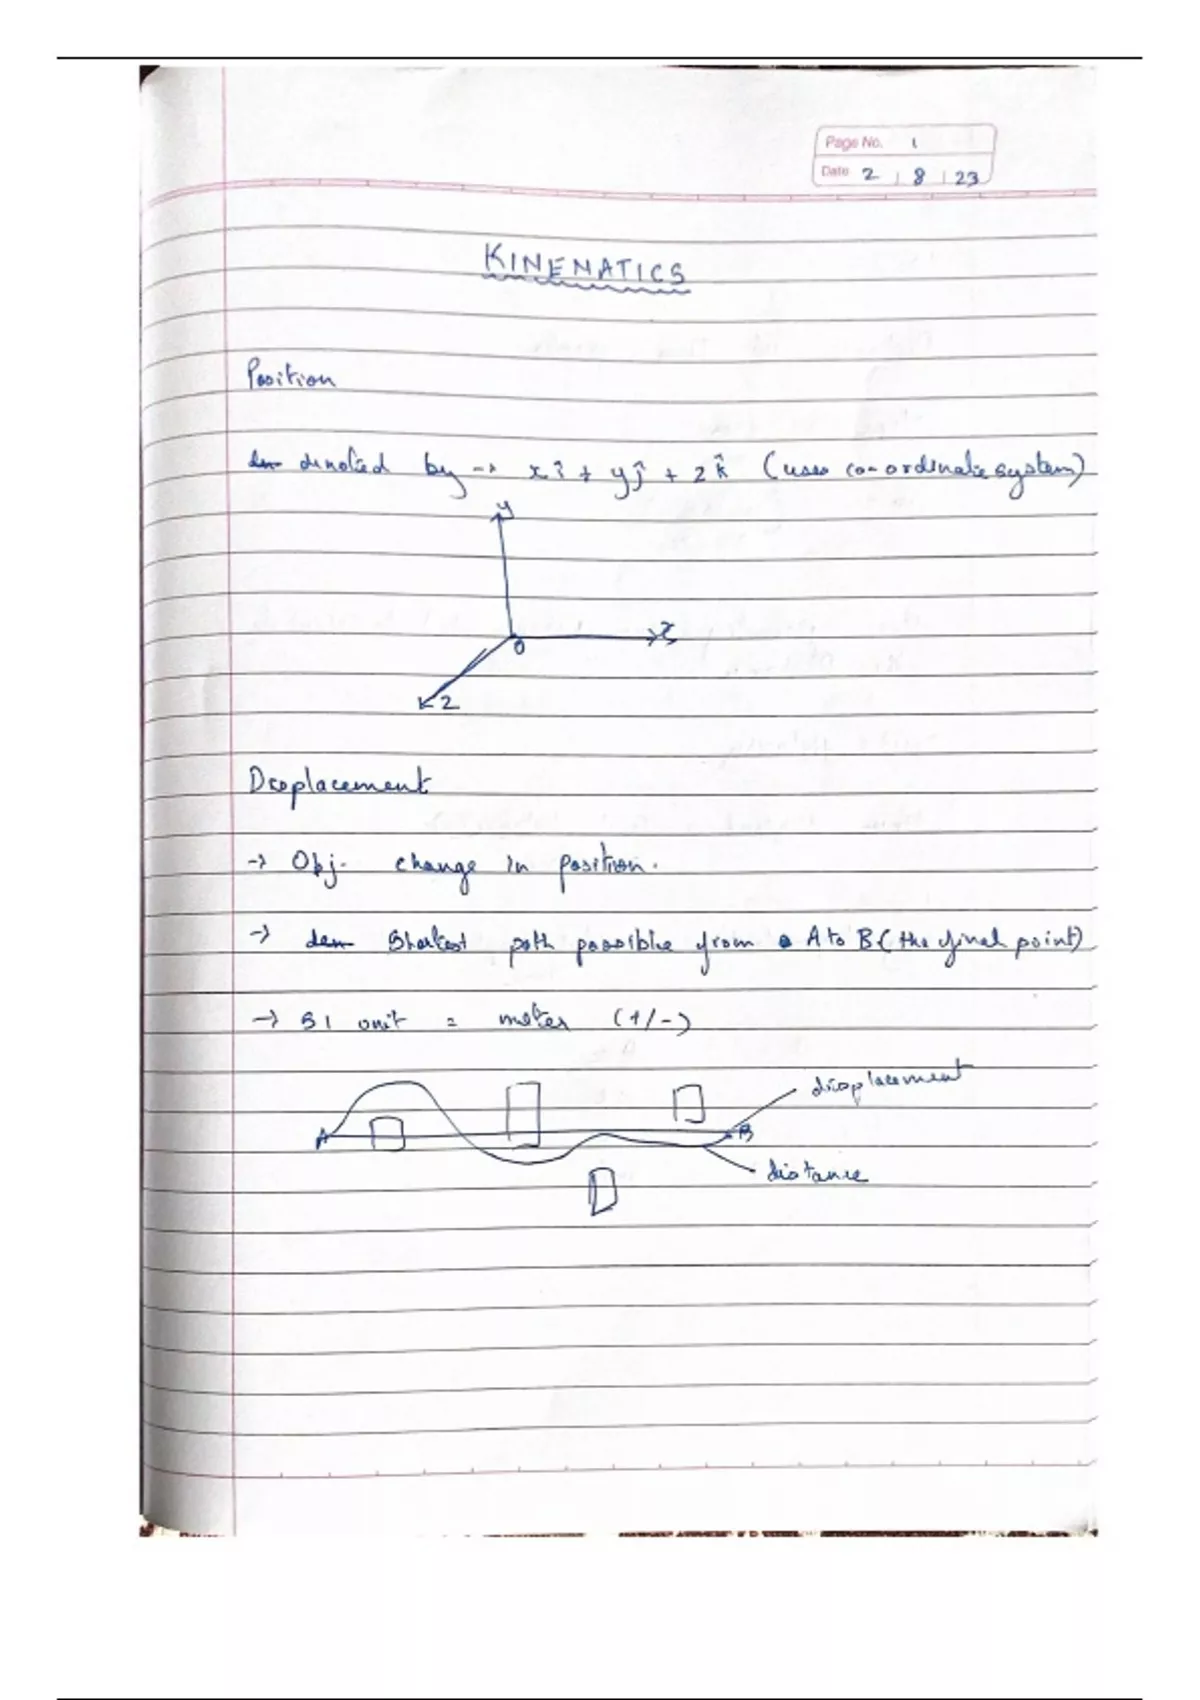 Page No. 1
Date 2 | 8 | 23
KINENATICS
Position
denoted by → xî + yĵ + zk̂ (uses co-ordinate system)
y
x
O
z
Displacement
→ Obj. change in position.
→ Shortest path possible from A to B (the final point)
→ SI unit = meter (+/-)
displacement
A
B
distance